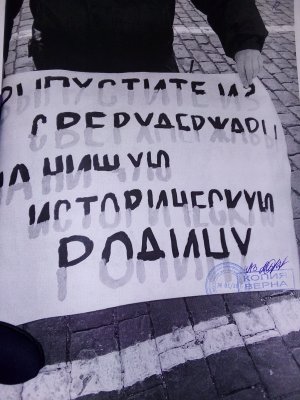 ВЫПУСТИТЕ ИЗ
СВЕРХДЕРЖАВЫ
НА НИЩУЮ
ИСТОРИЧЕСКУЮ
РОДИНУ
КОПИЯ
ВЕРНА